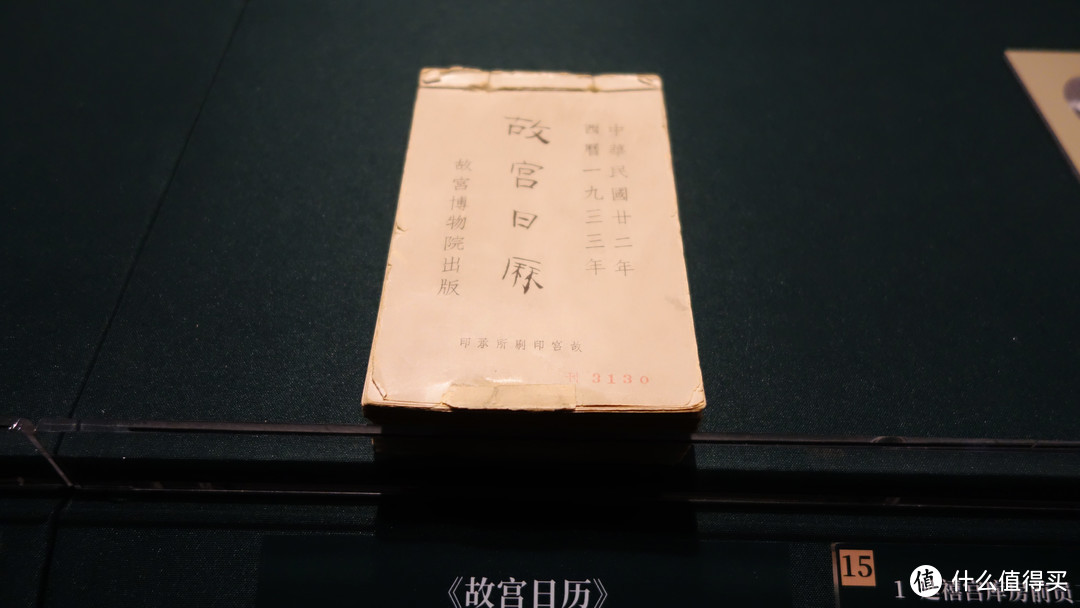 中華民國廿二年
西曆一九三三年
故宮日厤
故宮博物院出版
故宮印刷所承印
3130
《故宫日历》
15
1 禧宫库房前
值 什么值得买